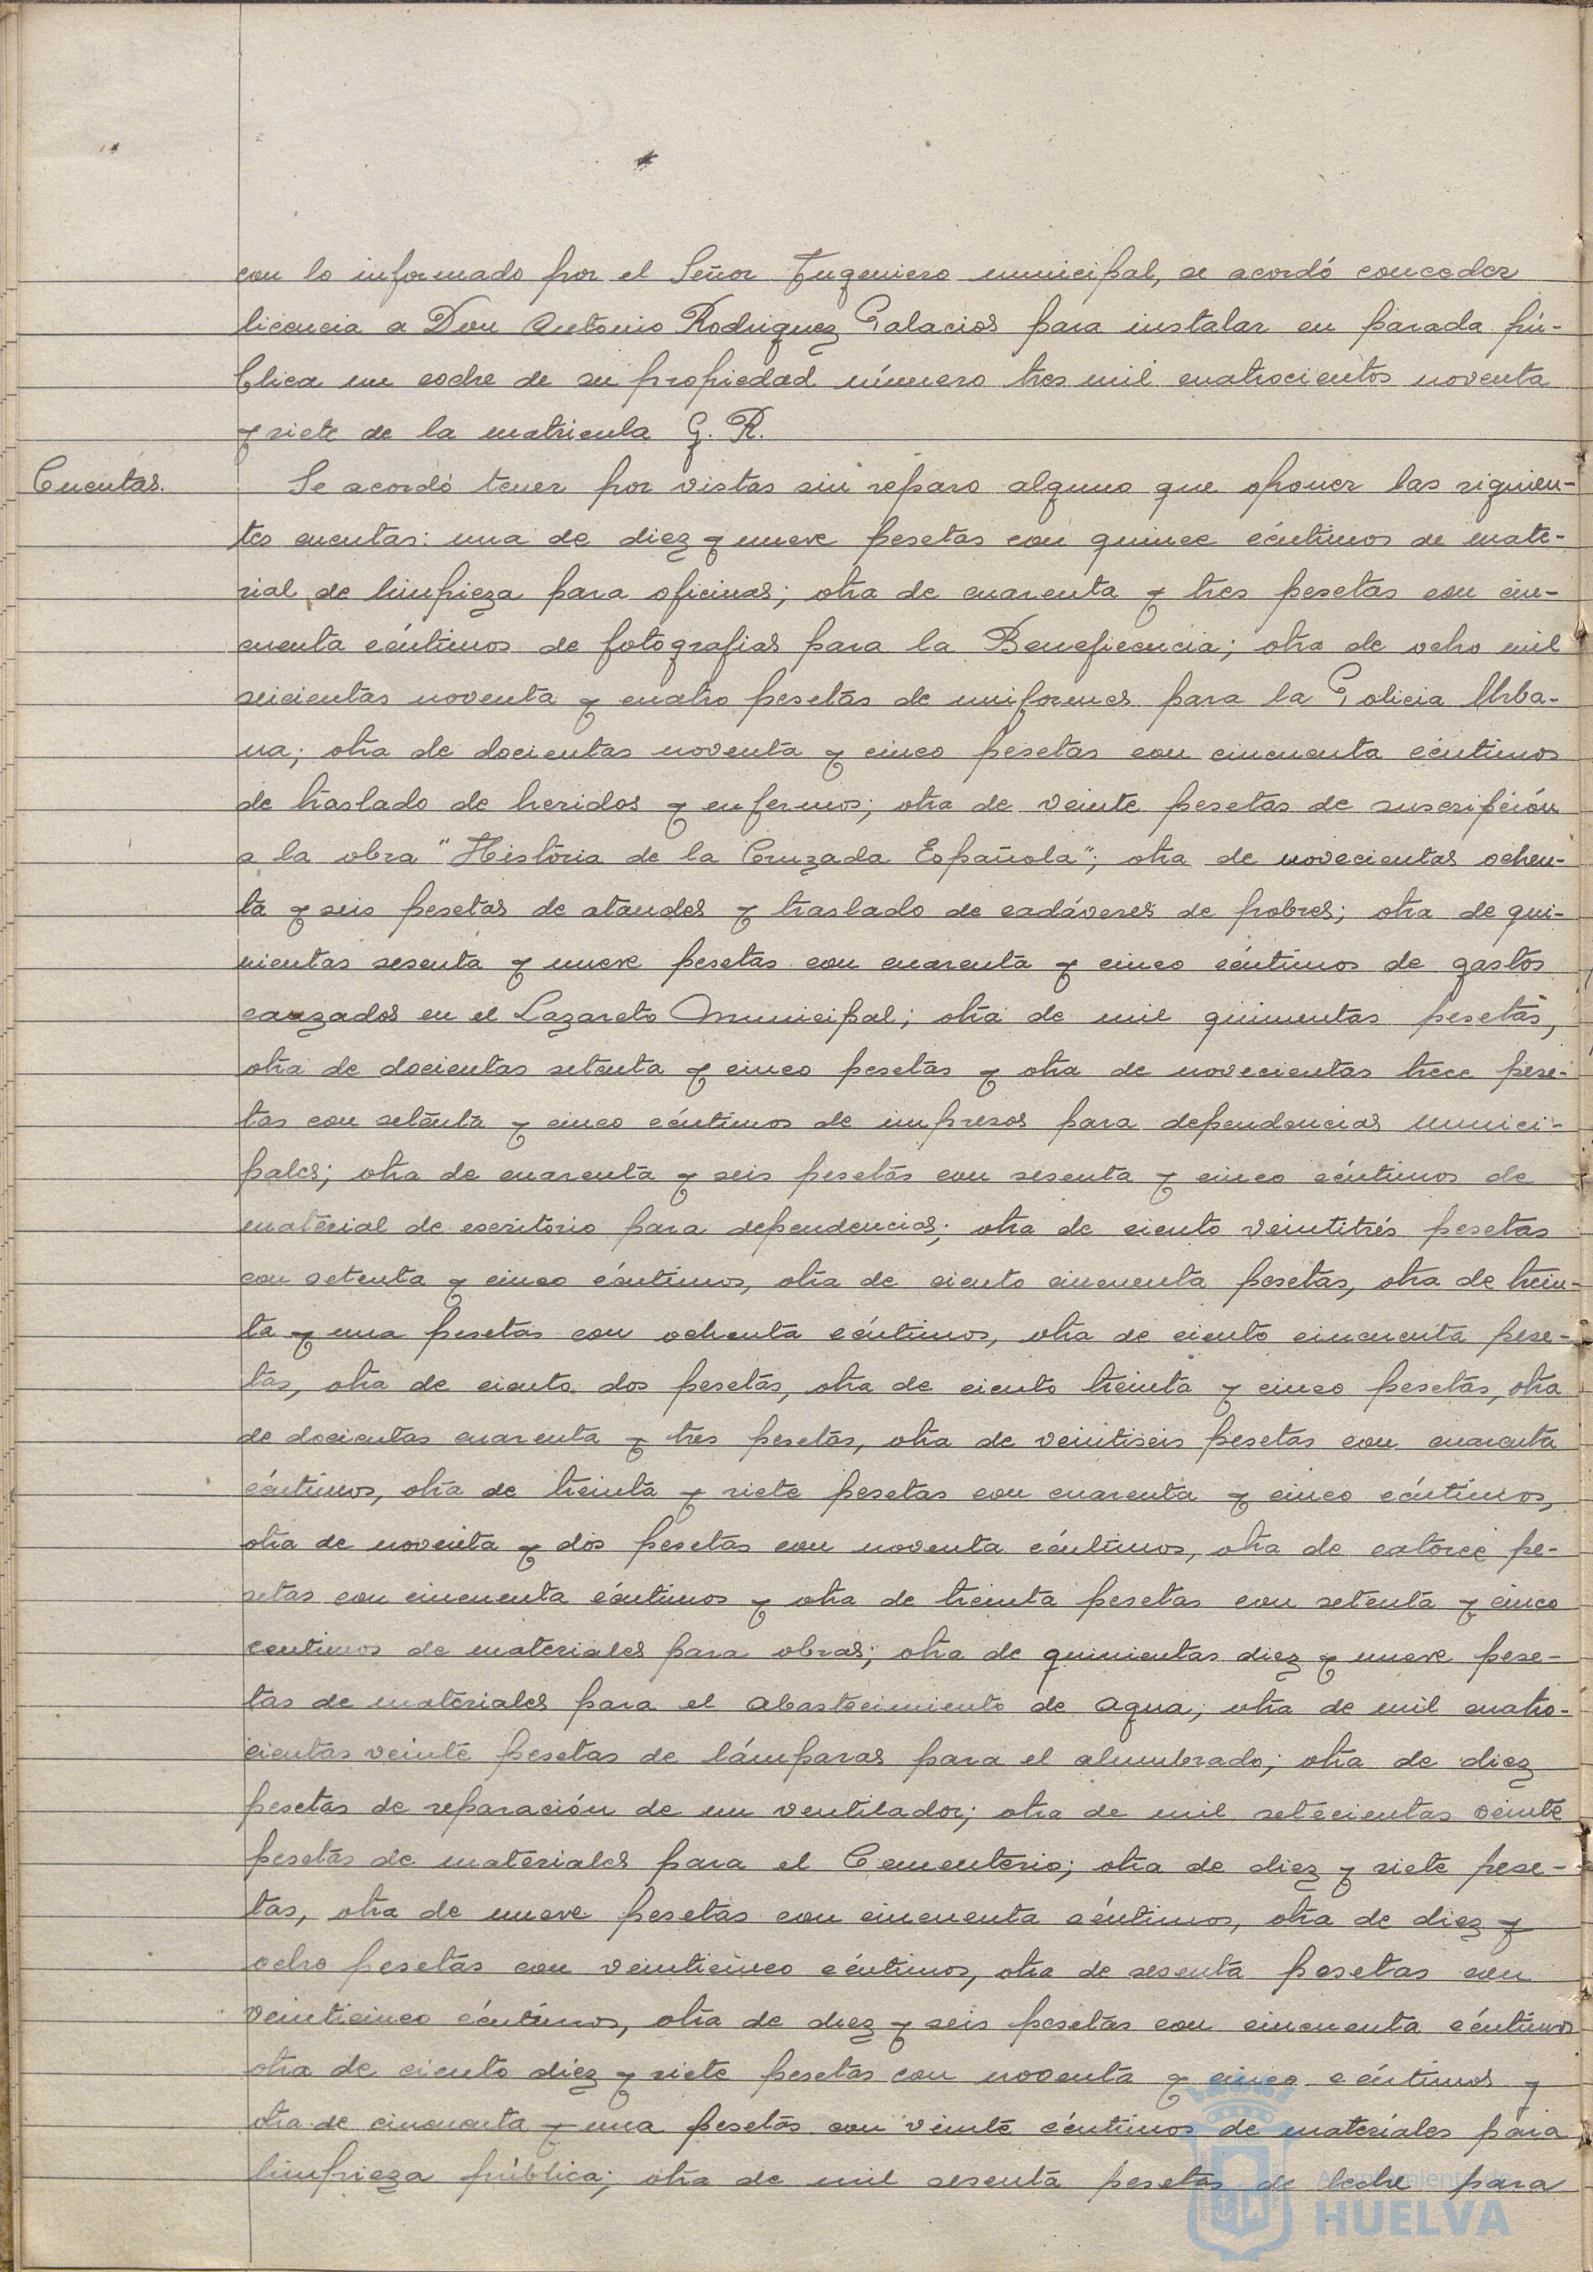 con lo informado por el Señor Ingeniero municipal, se acordó conceder
licencia a Don Antonio Rodriguez Palacios para instalar en parada pú-
blica un coche de su propiedad número tres mil cuatrocientos noventa
y siete de la matricula G. R.
Cuentas.
Se acordó tener por vistas sin reparo alguno que oponer las siguien-
tes cuentas: una de diez y nueve pesetas con quince céntimos de mate-
rial de limpieza para oficinas; otra de cuarenta y tres pesetas con cin-
cuenta céntimos de fotografias para la Beneficencia; otra de ocho mil
seicientas noventa y cuatro pesetas de uniformes para la Policia Urba-
na; otra de docientas noventa y cinco pesetas con cincuenta céntimos
de traslado de heridos y enfermos; otra de veinte pesetas de suscripción
a la obra "Historia de la Cruzada Española"; otra de novecientas ochen-
ta y seis pesetas de ataudes y traslado de cadáveres de pobres; otra de qui-
nientas sesenta y nueve pesetas con cuarenta y cinco céntimos de gastos
cauzados en el Lazareto Municipal; otra de mil quinientas pesetas,
otra de docientas setenta y cinco pesetas y otra de novecientas trece pese-
tas con setenta y cinco céntimos de impresos para dependencias munici-
pales; otra de cuarenta y seis pesetas con sesenta y cinco céntimos de
material de escritorio para dependencias; otra de ciento veintitrés pesetas
con setenta y cinco céntimos, otra de ciento cincuenta pesetas, otra de trein-
ta y una pesetas con ochenta céntimos, otra de ciento cincuenta pese-
tas, otra de ciento dos pesetas, otra de ciento treinta y cinco pesetas, otra
de docientas cuarenta y tres pesetas, otra de veintiseis pesetas con cuarenta
céntimos, otra de treinta y siete pesetas con cuarenta y cinco céntimos,
otra de noventa y dos pesetas con noventa céntimos, otra de catorce pe-
setas con cincuenta céntimos y otra de treinta pesetas con setenta y cinco
centimos de materiales para obras; otra de quinientas diez y nueve pese-
tas de materiales para el abastecimiento de agua; otra de mil cuatro-
cientas veinte pesetas de lámparas para el alumbrado; otra de diez
pesetas de reparación de un ventilador; otra de mil setecientas veinte
pesetas de materiales para el Cementerio; otra de diez y siete pese-
tas, otra de nueve pesetas con cincuenta céntimos, otra de diez y
ocho pesetas con veinticinco céntimos, otra de sesenta pesetas con
veinticinco céntimos, otra de diez y seis pesetas con cincuenta céntimos
otra de ciento diez y siete pesetas con noventa y cinco céntimos y
otra de cincuenta y una pesetas con veinte céntimos de materiales para
limpieza pública; otra de mil sesenta pesetas de leche para
Ayuntamiento de
HUELVA